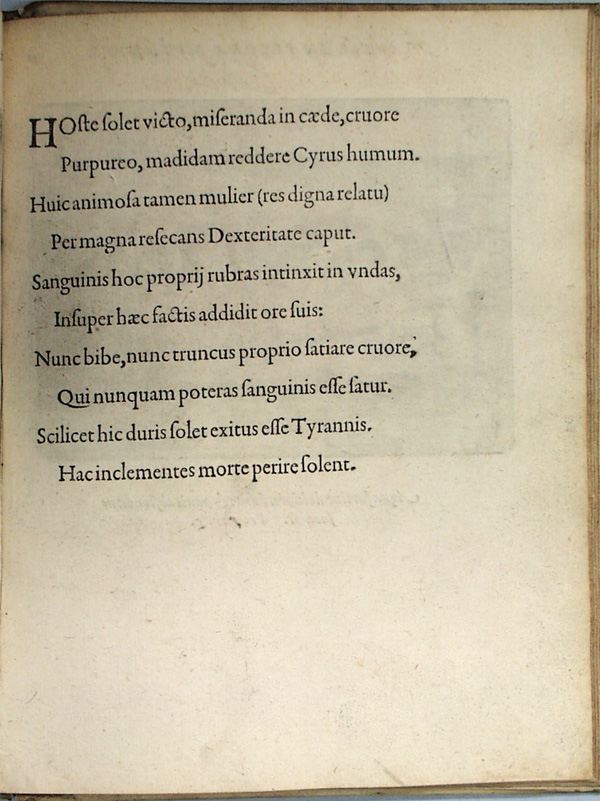 HOſte ſolet victo, miſeranda in cæde, cruore
Purpureo, madidam reddere Cyrus humum.
Huic animoſa tamen mulier (res digna relatu)
Per magna reſecans Dexteritate caput.
Sanguinis hoc proprij rubras intinxit in vndas,
Inſuper hæc factis addidit ore ſuis:
Nunc bibe, nunc truncus proprio ſatiare cruore,
Qui nunquam poteras ſanguinis eſſe ſatur.
Scilicet hic duris ſolet exitus eſſe Tyrannis.
Hac inclementes morte perire ſolent.